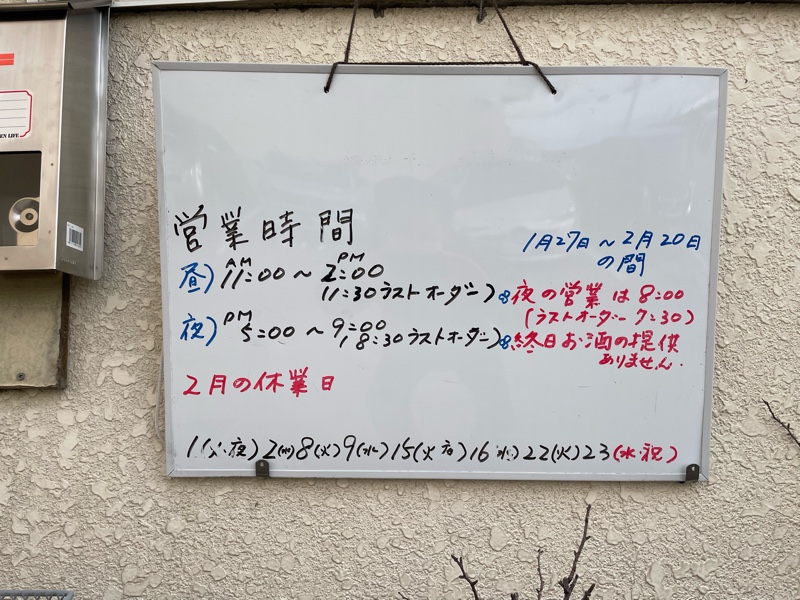 営業時間
昼) AM 11:00 ～ PM 2:00
11:30ラストオーダー)
夜) PM 5:00 ～ 9:00
8:30ラストオーダー)
1月27日 ～ 2月20日
の間
※夜の営業は8:00
(ラストオーダー 7:30)
※終日お酒の提供
ありません.
2月の休業日
1(火・夜) 2(水) 8(火) 9(水) 15(火・夜) 16(水) 22(火) 23(水・祝)